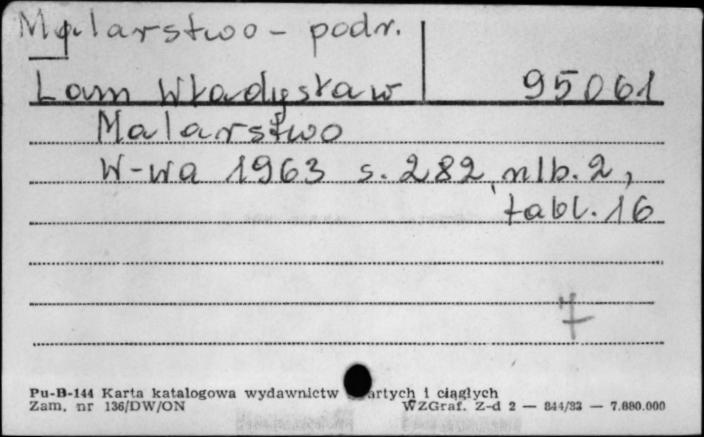 Malarstwo - podr.
Lam Władysław 95061
Malarstwo
W-wa 1963 s. 282, nlb. 2,
tabl. 16
7
Pu-B-144 Karta katalogowa wydawnictw artych i ciągłych
Zam. nr 136/DW/ON WZGraf. Z-d 2 — 844/83 — 7.880.000